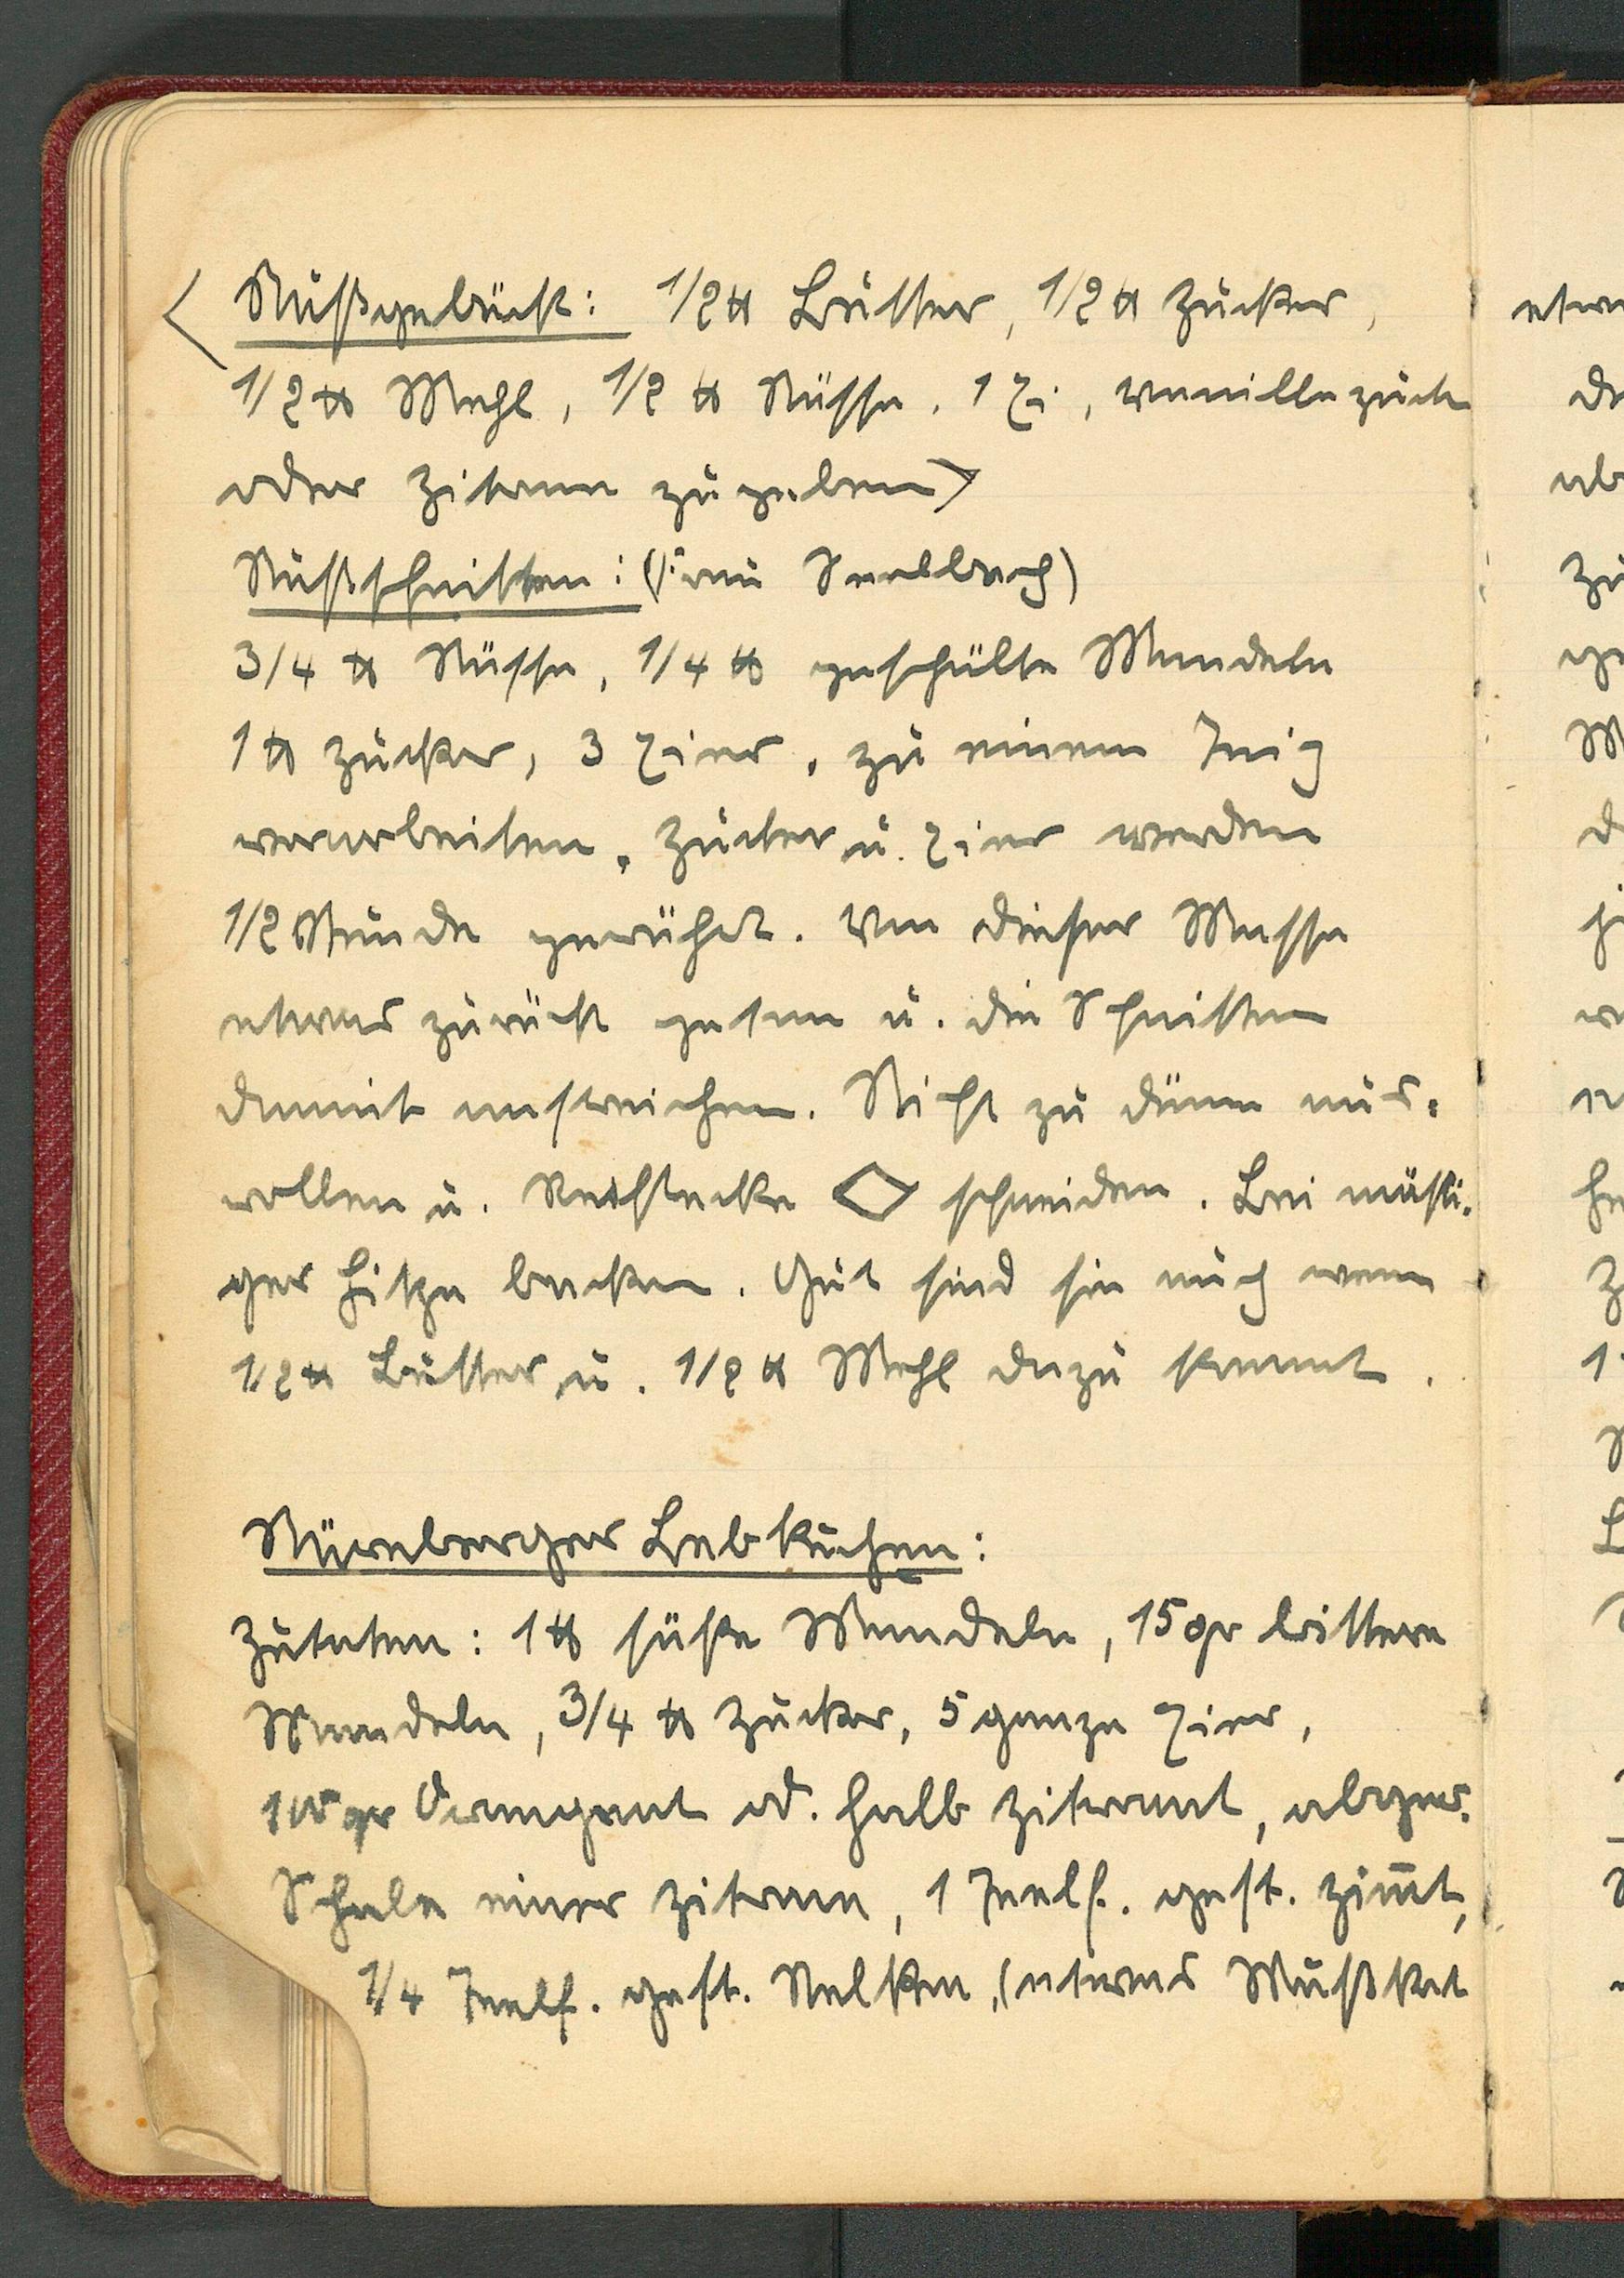 Nußgebäck: 1/2 ℔ Butter, 1/2 ℔ Zucker,
1/2 ℔ Mehl, 1/2 ℔ Nüsse, 1 Ei, Vanillezucker
oder Zitrone zugeben
Nußschnitten: (Frau Seelbach)
3/4 ℔ Nüsse, 1/4 ℔ geschälte Mandeln
1 ℔ Zucker, 3 Eier, zu einem Teig
verarbeiten. Zucker u. Eier werden
1/2 Stunde gerührt. Von dieser Masse
etwas zurück getan u. die Schnitten
damit anstreichen. Nicht zu dünn aus-
rollen u. Rechtecke ◇ schneiden. Bei mäßi-
ger Hitze backen. Gut sind sie auch wenn
1/2 ℔ Butter u. 1/2 ℔ Mehl dazu kommt.
Nürnberger Lebkuchen:
Zutaten: 1 ℔ süße Mandeln, 15 gr bittere
Mandeln, 3/4 ℔ Zucker, 5 ganze Eier,
100 gr Orangeat od. halb Zitronat, abger.
Schale einer Zitrone, 1 Teelf. gest. Zim̅t,
1/4 Teelf. gest. Nelken, (etwas Mußkat